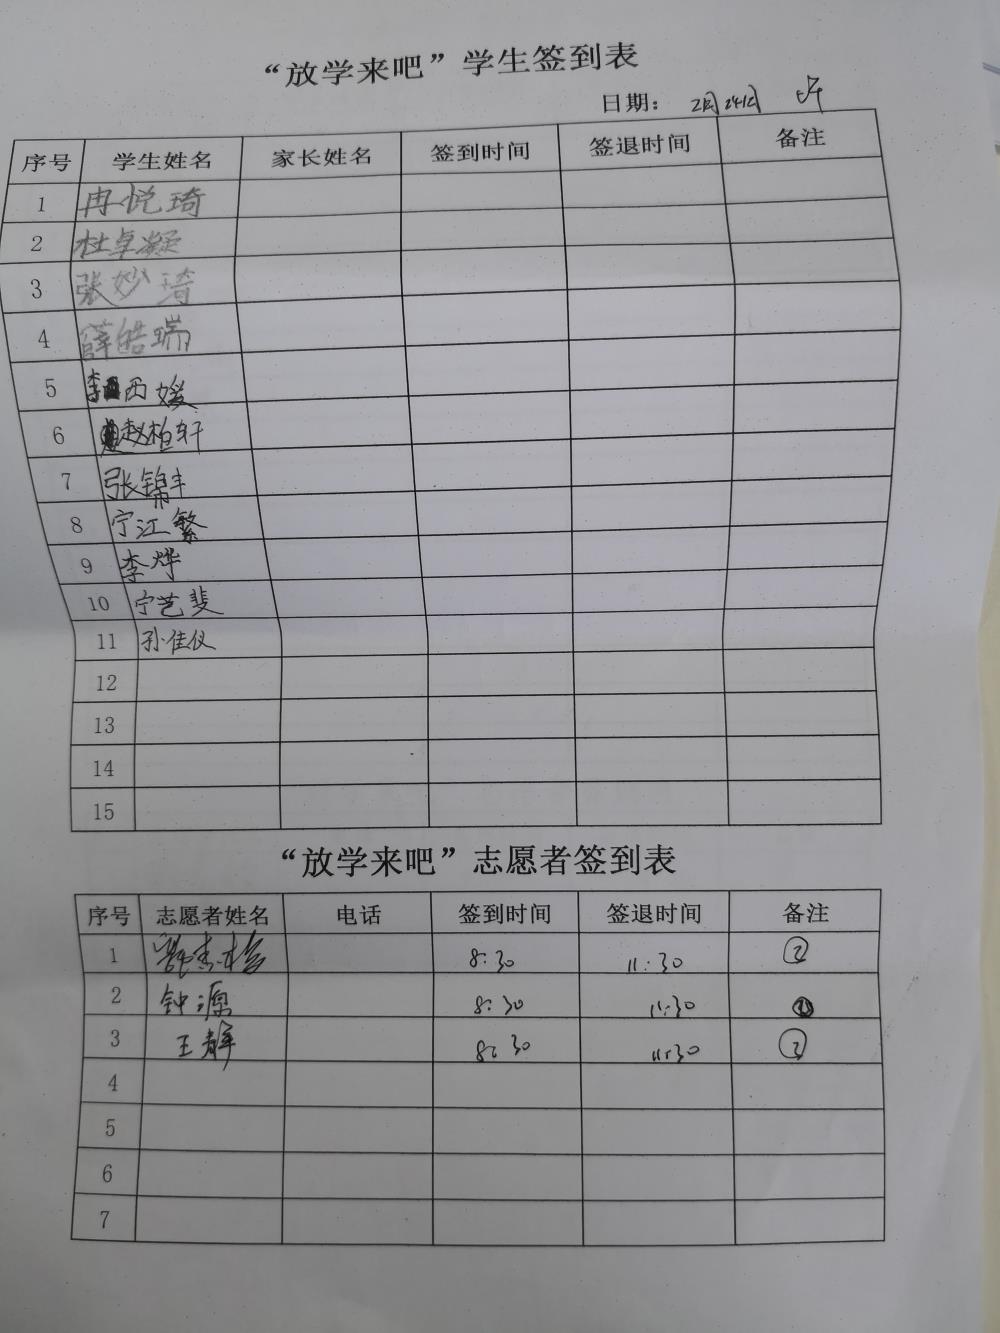 “放学来吧”学生签到表
日期： 2月24日 上午
序号 学生姓名 家长姓名 签到时间 签退时间 备注
1 冉悦琦
2 杜卓凝
3 张妙琦
4 薛皓瑞
5 李西媛
6 赵柏轩
7 张锦丰
8 宁江繁
9 李烨
10 宁艺斐
11 孙佳仪
12
13
14
15
“放学来吧”志愿者签到表
序号 志愿者姓名 电话 签到时间 签退时间 备注
1 8:30 11:30 ③
2 钟源 8:30 11:30
3 王静 8:30 11:30 ③
4
5
6
7